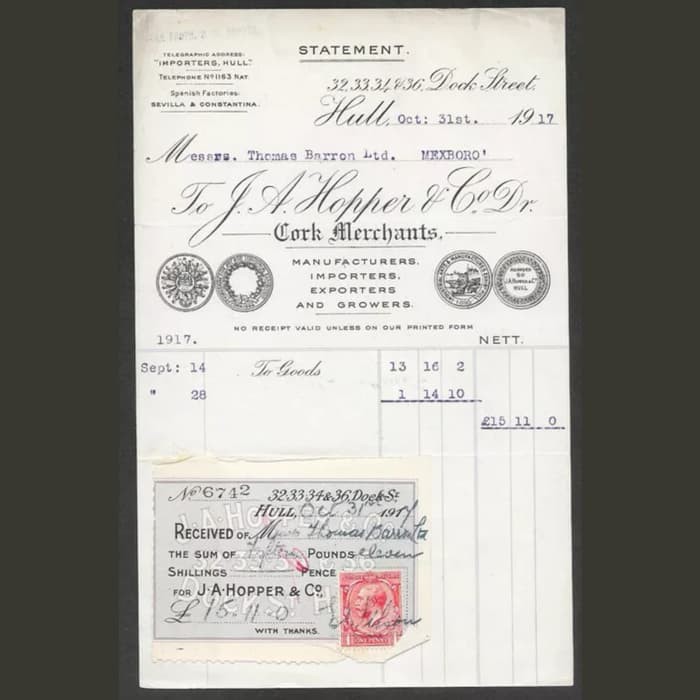 STATEMENT.
TELEGRAPHIC ADDRESS:
"IMPORTERS, HULL."
TELEPHONE No 1163 NAT.
Spanish Factories:
SEVILLA & CONSTANTINA.
32, 33, 34, & 36, Dock Street,
Hull, Oct: 31st. 1917
Messrs. Thomas Barron Ltd. MEXBORO'
To J. A. Hopper & Co. Dr.
Cork Merchants,
MANUFACTURERS,
IMPORTERS,
EXPORTERS
AND GROWERS.
AWARDED
TO
J.A. HOPPER & Co
HULL
NO RECEIPT VALID UNLESS ON OUR PRINTED FORM
1917. NETT.
Sept: 14 To Goods 13 16 2
" 28 1 14 10
£15 11 0
No 6742 32·33·34 & 36, Dock St
HULL, Oct 31st 1917
RECEIVED OF Messrs Thomas Barron Ltd
THE SUM OF Fifteen POUNDS eleven
SHILLINGS PENCE
FOR J·A·HOPPER & Co.
£15-11-0
WITH THANKS.